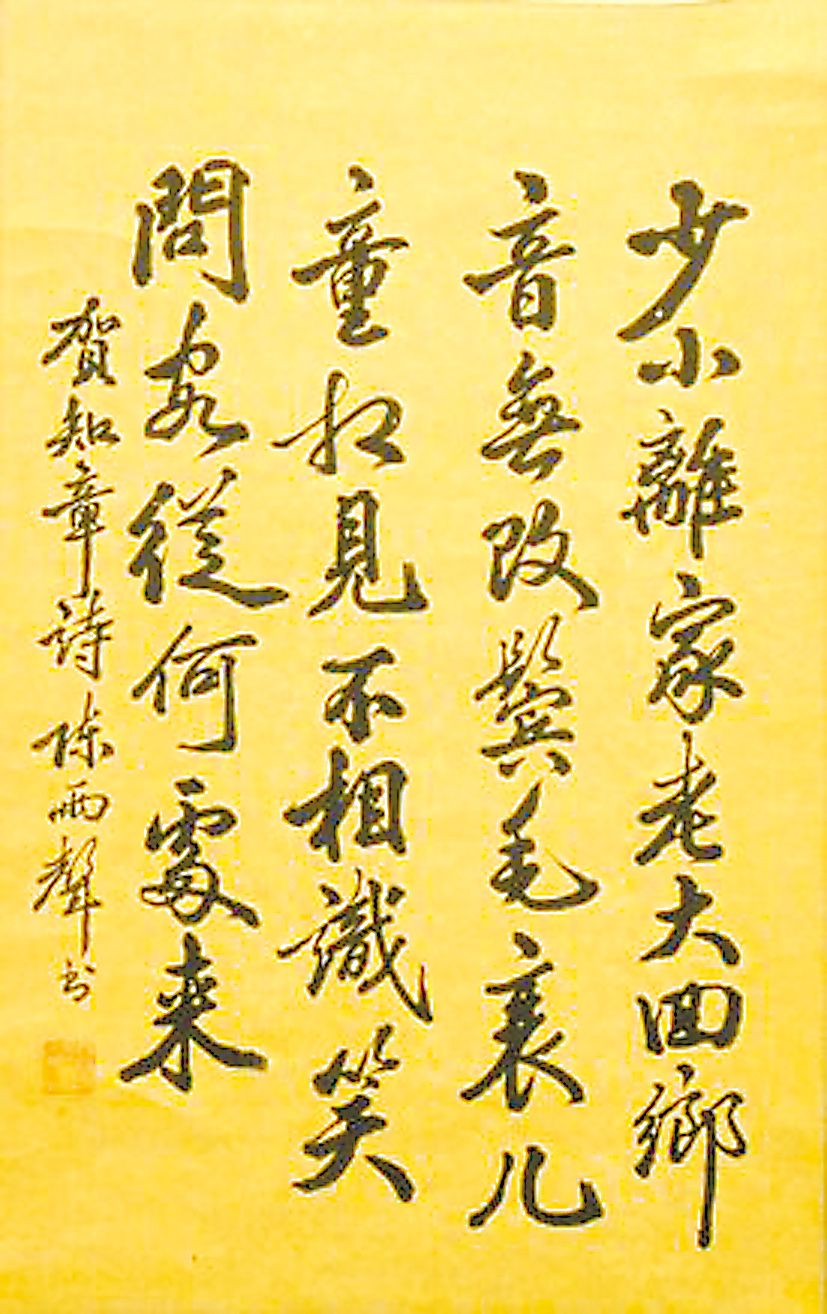 少小離家老大回鄉
音無改鬢毛衰儿
童相見不相識笑
問客從何處来
賀知章詩陳雨聲书